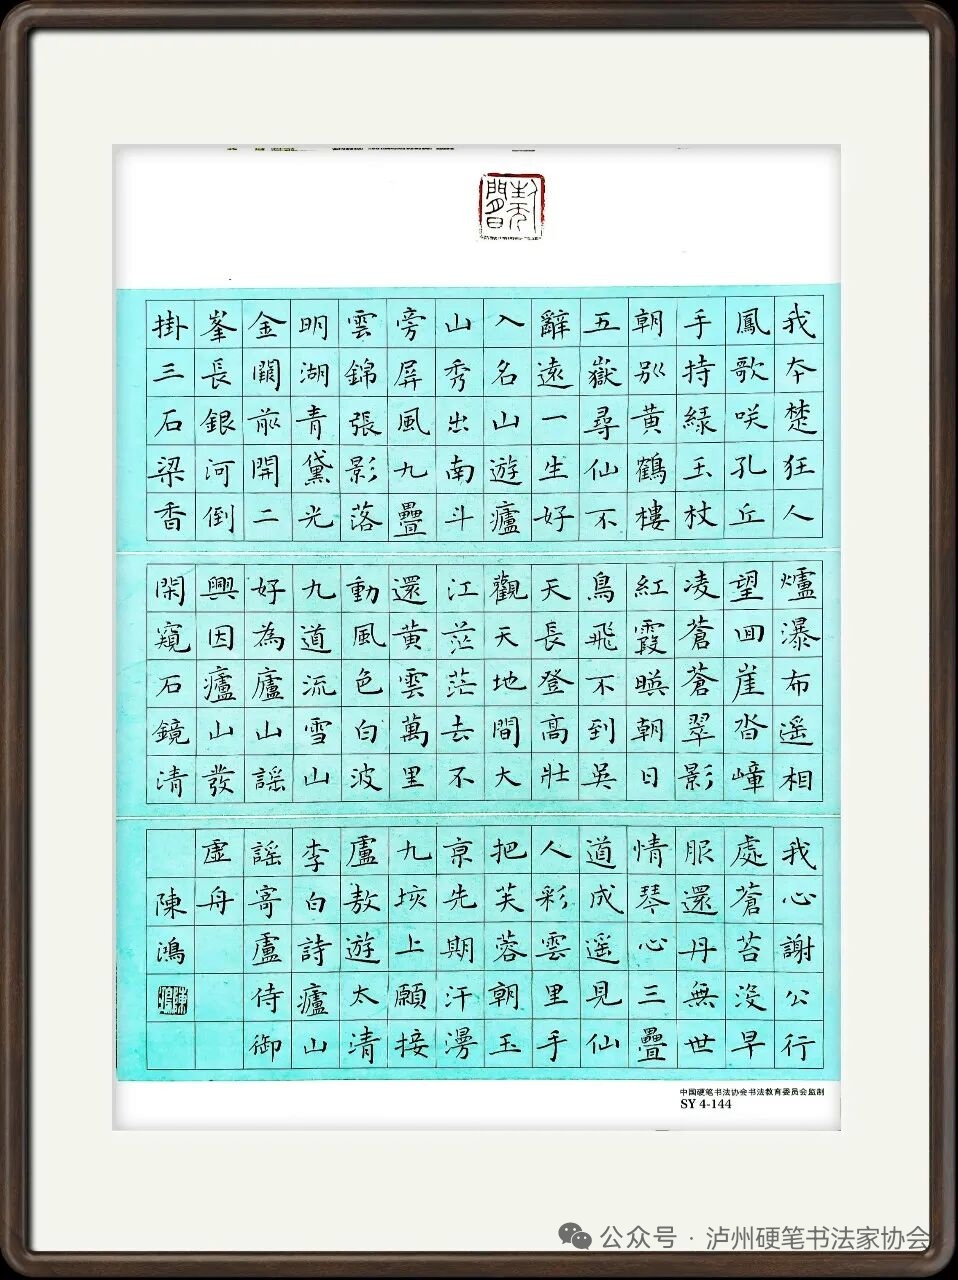 我本楚狂人
鳳歌咲孔丘
手持緑玉杖
朝别黄鶴樓
五嶽尋仙不
辭遠一生好
入名山遊廬
山秀出南斗
旁屏風九疊
雲錦張影落
明湖青黛光
金闕前開二
峯長銀河倒
掛三石梁香
爐瀑布遥相
望回崖沓嶂
凌蒼蒼翠影
紅霞暎朝日
鳥飛不到吳
天長登高壯
觀天地間大
江茫茫去不
還黄雲萬里
動風色白波
九道流雪山
好為廬山謡
興因廬山發
閑窺石鏡清
我心謝公行
處蒼苔没早
服還丹無世
情琴心三疊
道成遥見仙
人彩雲里手
把芙蓉朝玉
京先期汗漫
九垓上願接
盧敖遊太清
李白詩廬山
謡寄盧侍御
虚舟
陳鴻
中国硬笔书法协会书法教育委员会监制
SY 4-144
公众号·泸州硬笔书法家协会